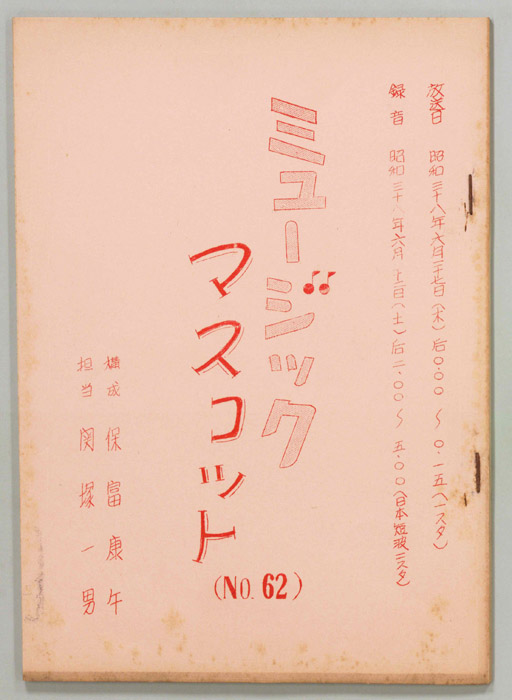 放送日 昭和三十八年六月二十七日(木)后〇・〇〇〜〇・一五(一スタ)
録音 昭和三十八年六月 日(土)后二・〇〇〜五・〇〇(日本短波二スタ)
ミュージック
マスコット
(NO. 62)
構成 保富康午
担当 関塚一男